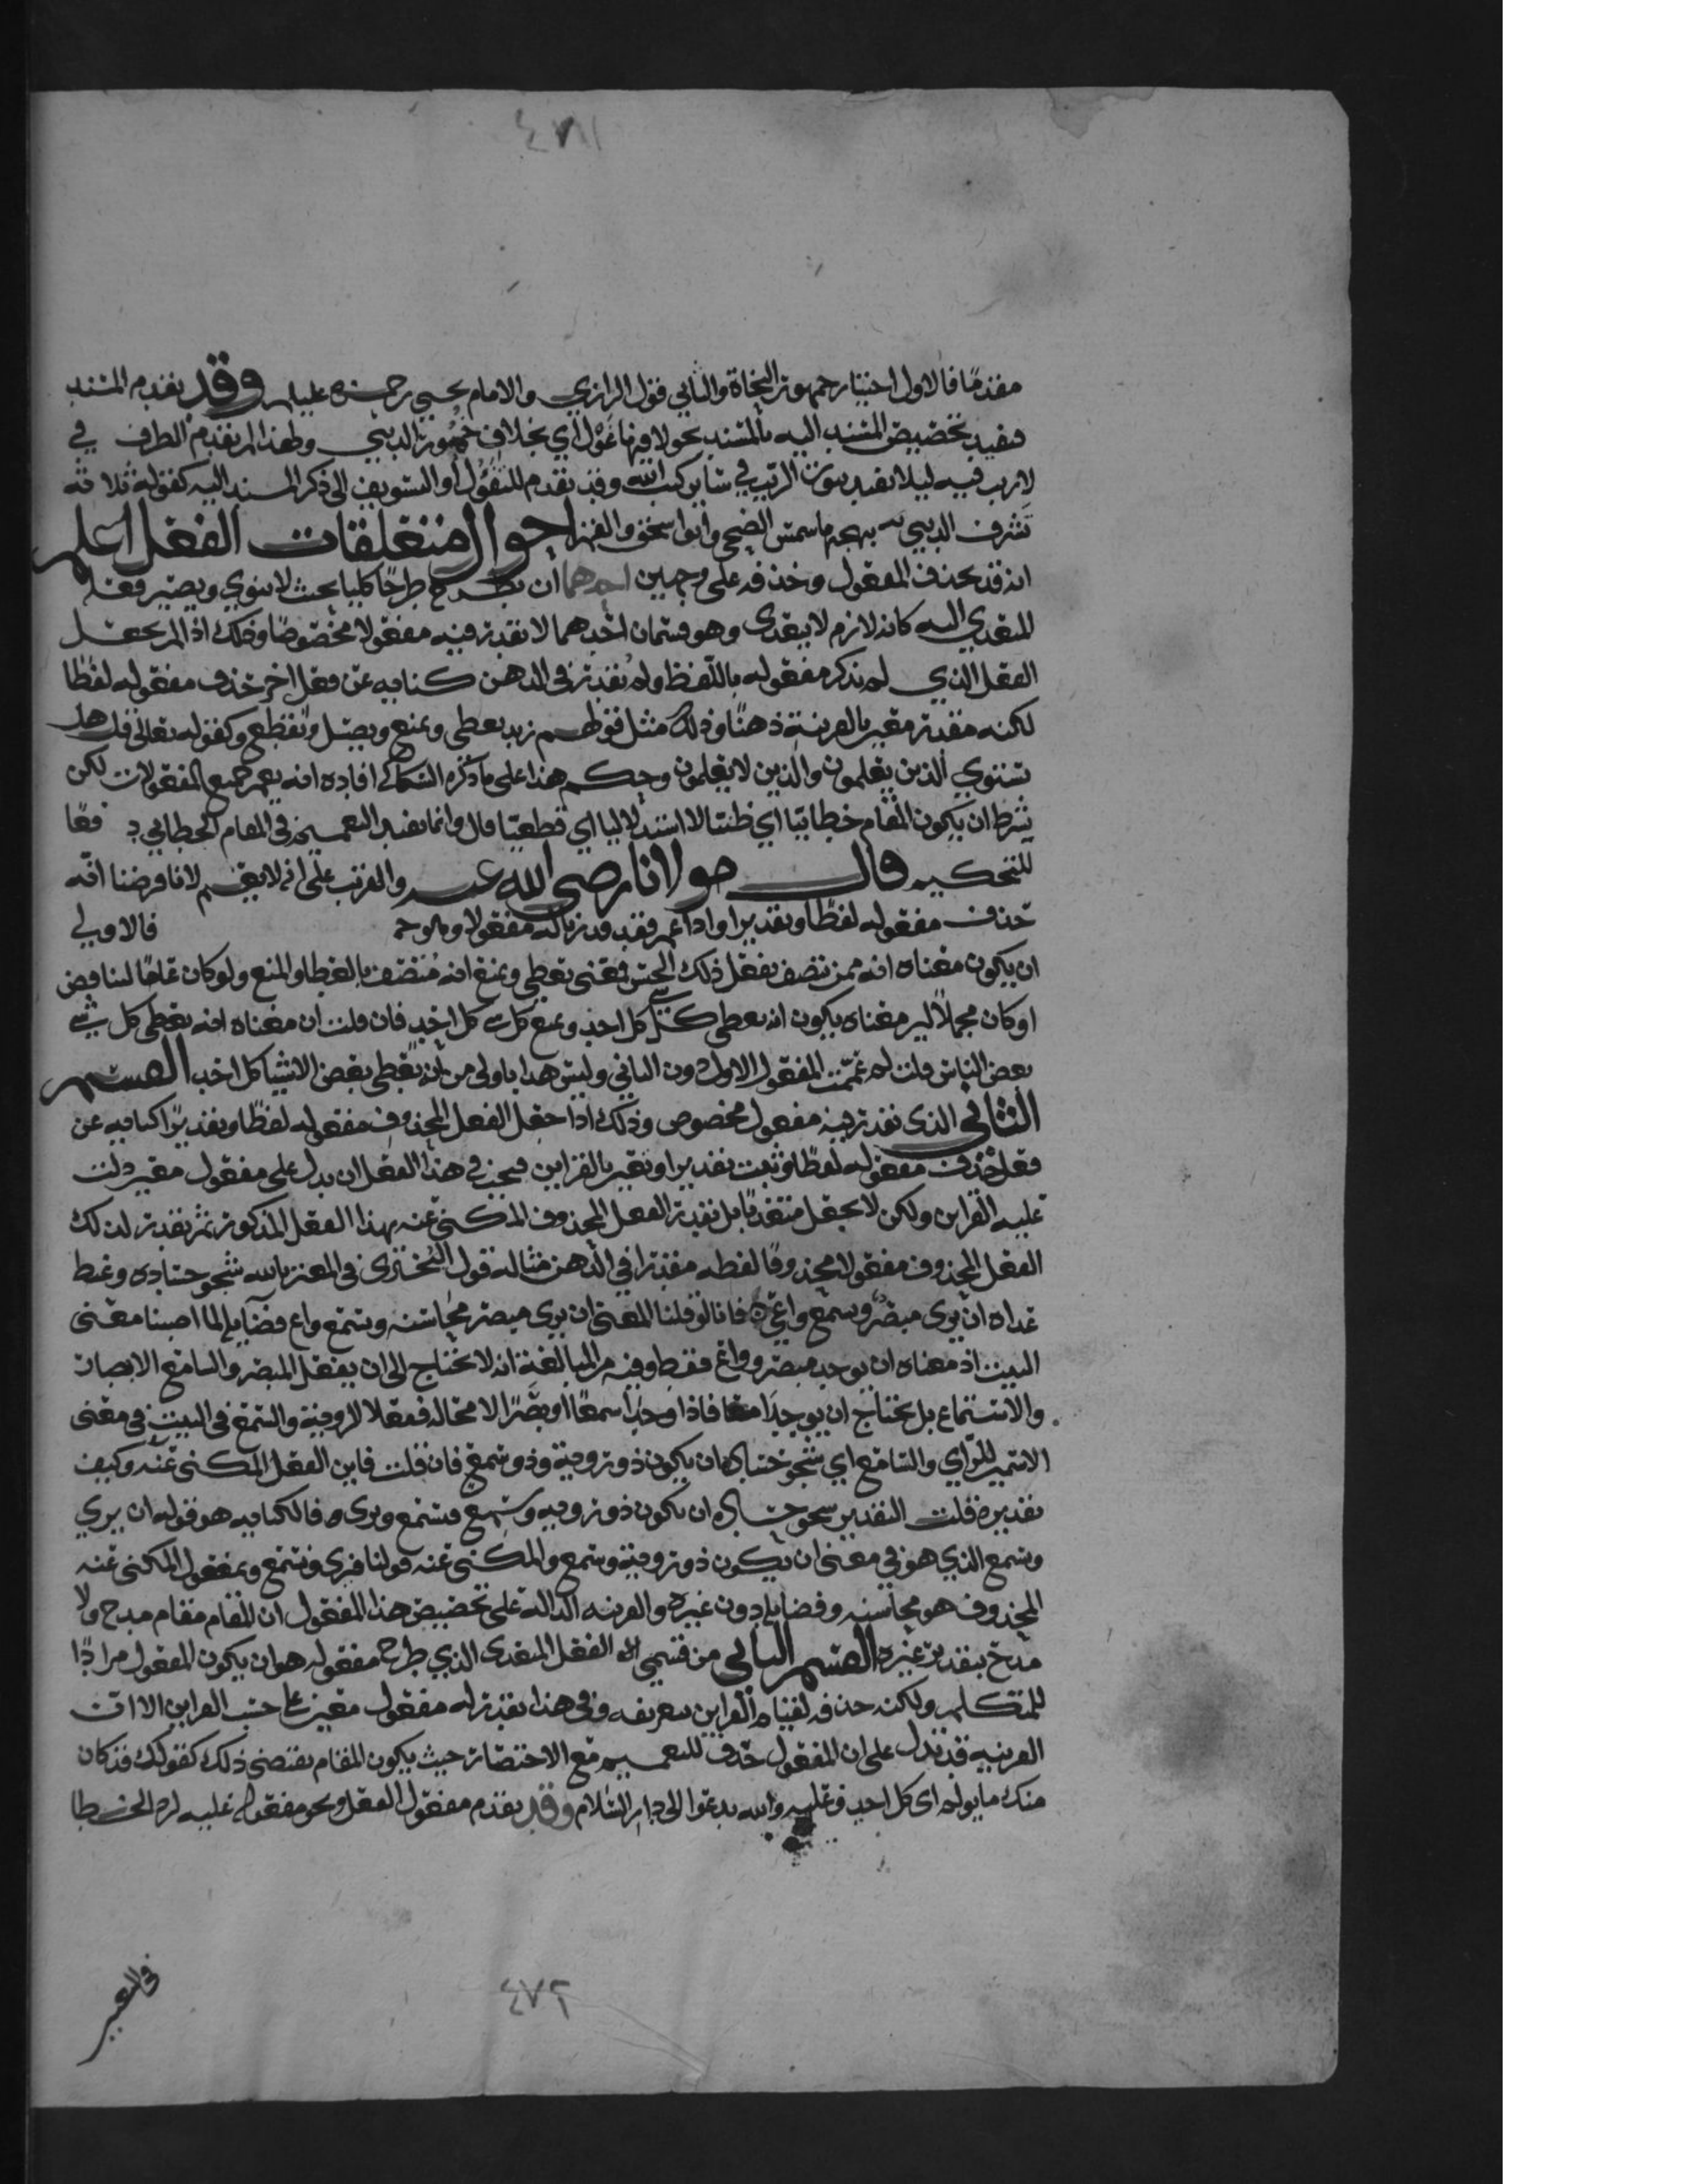 ٤٧١
مقدما فالاول اختيار جمهور النحاة والثاني قول الرازي والامام يحيى رحمة عليه وقد يقدم المسند
فيفيد تخصيص المسند اليه بالمسند نحو لا فيها غول اي بخلاف خمور الدنيي ولهذا لم يقدم الظرف في
لا ريب فيه ليلا يفيد ثبوت الريب في ساير كتب الله وقد تقدم للتفؤل او التشويق الى ذكر المسند اليه كقوله ثلاثة
تشرق الدنيى ببهجتها شمس الضحى وابوا سحق والقمر احوال متعلقات الفعل اعلم
انه قد يحذف المفعول وحذفه على وجهين احدهما ان يطرح طرحا كليا بحيث لا ينوي ويصير فعله
المتعدي اليه كانه لازم لا يتعدى وهو قسمان احدهما لا تقدر فيه مفعولا مخصوصا وذلك اذا لم يجعل
الفعل الذي لم يذكر مفعوله باللفظ ولم يقدر في الذهن كنايه عن فعل اخر حذف مفعوله لفظا
لكنه مقدر معين بالقرينة ذهنا وذلك مثل قولهم زيد يعطي ويمنع ويصل ويقطع وكقوله تعالى قل هل
يستوي الذين يعلمون والذين لا يعلمون وحكم هذا على ما ذكره السكاكي افاده انه يعم جميع المفعولات لكن
بشرط ان يكون المقام خطابيا اي ظنيا لا استدلاليا اي قطعيا قال وانما يفيد التعميم في المقام الخطابي دفعا
للتحكيم قال مولانا رضي الله عنه والاقرب على انه لا يعم لانا فرضنا انه
حذف مفعوله لفظا وتقديرا واذا عم فقد قدرنا له مفعولا فالاولي
ان يكون معناه انه ممن تصف بفعل ذلك الجنس فمعنى يعطي ويمنع انه متصف بالعطا والمنع ولو كان عاما لتناقض
او كان مجملا اليس معناه يكون انه يعطي كل شي كل احد ويمنع كل شي كل احد فان قلت ان معناه انه يعطي كل شي
بعض الناس قلت لم عممت المفعول الاول دون الثاني وليس هذا باولى من انه يعطي بعض الاشيا كل احد القسم
الثاني الذي تقدر فيه مفعول مخصوص وذلك اذا جعل الفعل المحذوف مفعوله لفظا وتقديرا كنايه عن
فعل حذف مفعوله لفظا وثبت تقديرا وتعين بالقراين فيجب في هذا الفعل ان يدل على مفعول معين دلت
عليه القراين ولكن لا يجعل متعديا بل تقدر الفعل المحذوف المكنى عنه بهذا الفعل المذكور ثم تقدر لذلك
الفعل المحذوف مفعولا محذوفا لفظه مقدرا في الذهن مثاله قول البحتري في المعتز بالله شجو حساده وغيظ
عداه ان يرى مبصر ويسمع واعي فانا لو قلنا المعنى ان يرى مبصر محاسنه ويسمع واع فضايله لما اصبنا معنى
البيت اذ معناه ان يوجد مبصر وواع فقط وفيه من المبالغة انه لا يحتاج الى ان يفعل المبصر والسامع الابصار
والاستماع بل يحتاج ان يوجدا معا فاذا وجدا سمعا وبصرا لا محاله ففعلا الروية والسمع في البيت في معنى
الاسم للراي والسامع اي شجو حساده ان يكون ذو روية وذو سمع فان قلت فاين الفعل المكنى عنه وكيف
تقديره قلت التقدير شجو حساده ان يكون ذو رويه وسمع فيسمع ويرى فالكنايه هو قوله ان يري
ويسمع الذي هو في معنى ان يكون ذو روية وسمع والمكنى عنه قولنا فيرى ويسمع ومفعول المكنى عنه
المحذوف هو محاسنه وفضايله دون غيره والقرينه الدالة على تخصيص هذا المفعول ان المقام مقام مدح ولا
مدح بتقدير غيره القسم الثاني من قسمي الفعل المتعدى الذي طرح مفعوله هو ان يكون المفعول مرادا
للمتكلم ولكنه حذفه لقيام القراين بتعريفه وفي هذا تقدر له مفعول معين على حسب القراين الا ان
القرينه قد تدل على ان المفعول حذف للتعميم مع الاختصار حيث يكون المقام يقتضي ذلك كقولك قد كان
منك ما يولم اي كل احد وعليه والله يدعوا الى دار السلام وقد يقدم مفعول الفعل ونحو مفعوله عليه لرد الخطا
في التعيين
٤٧٢